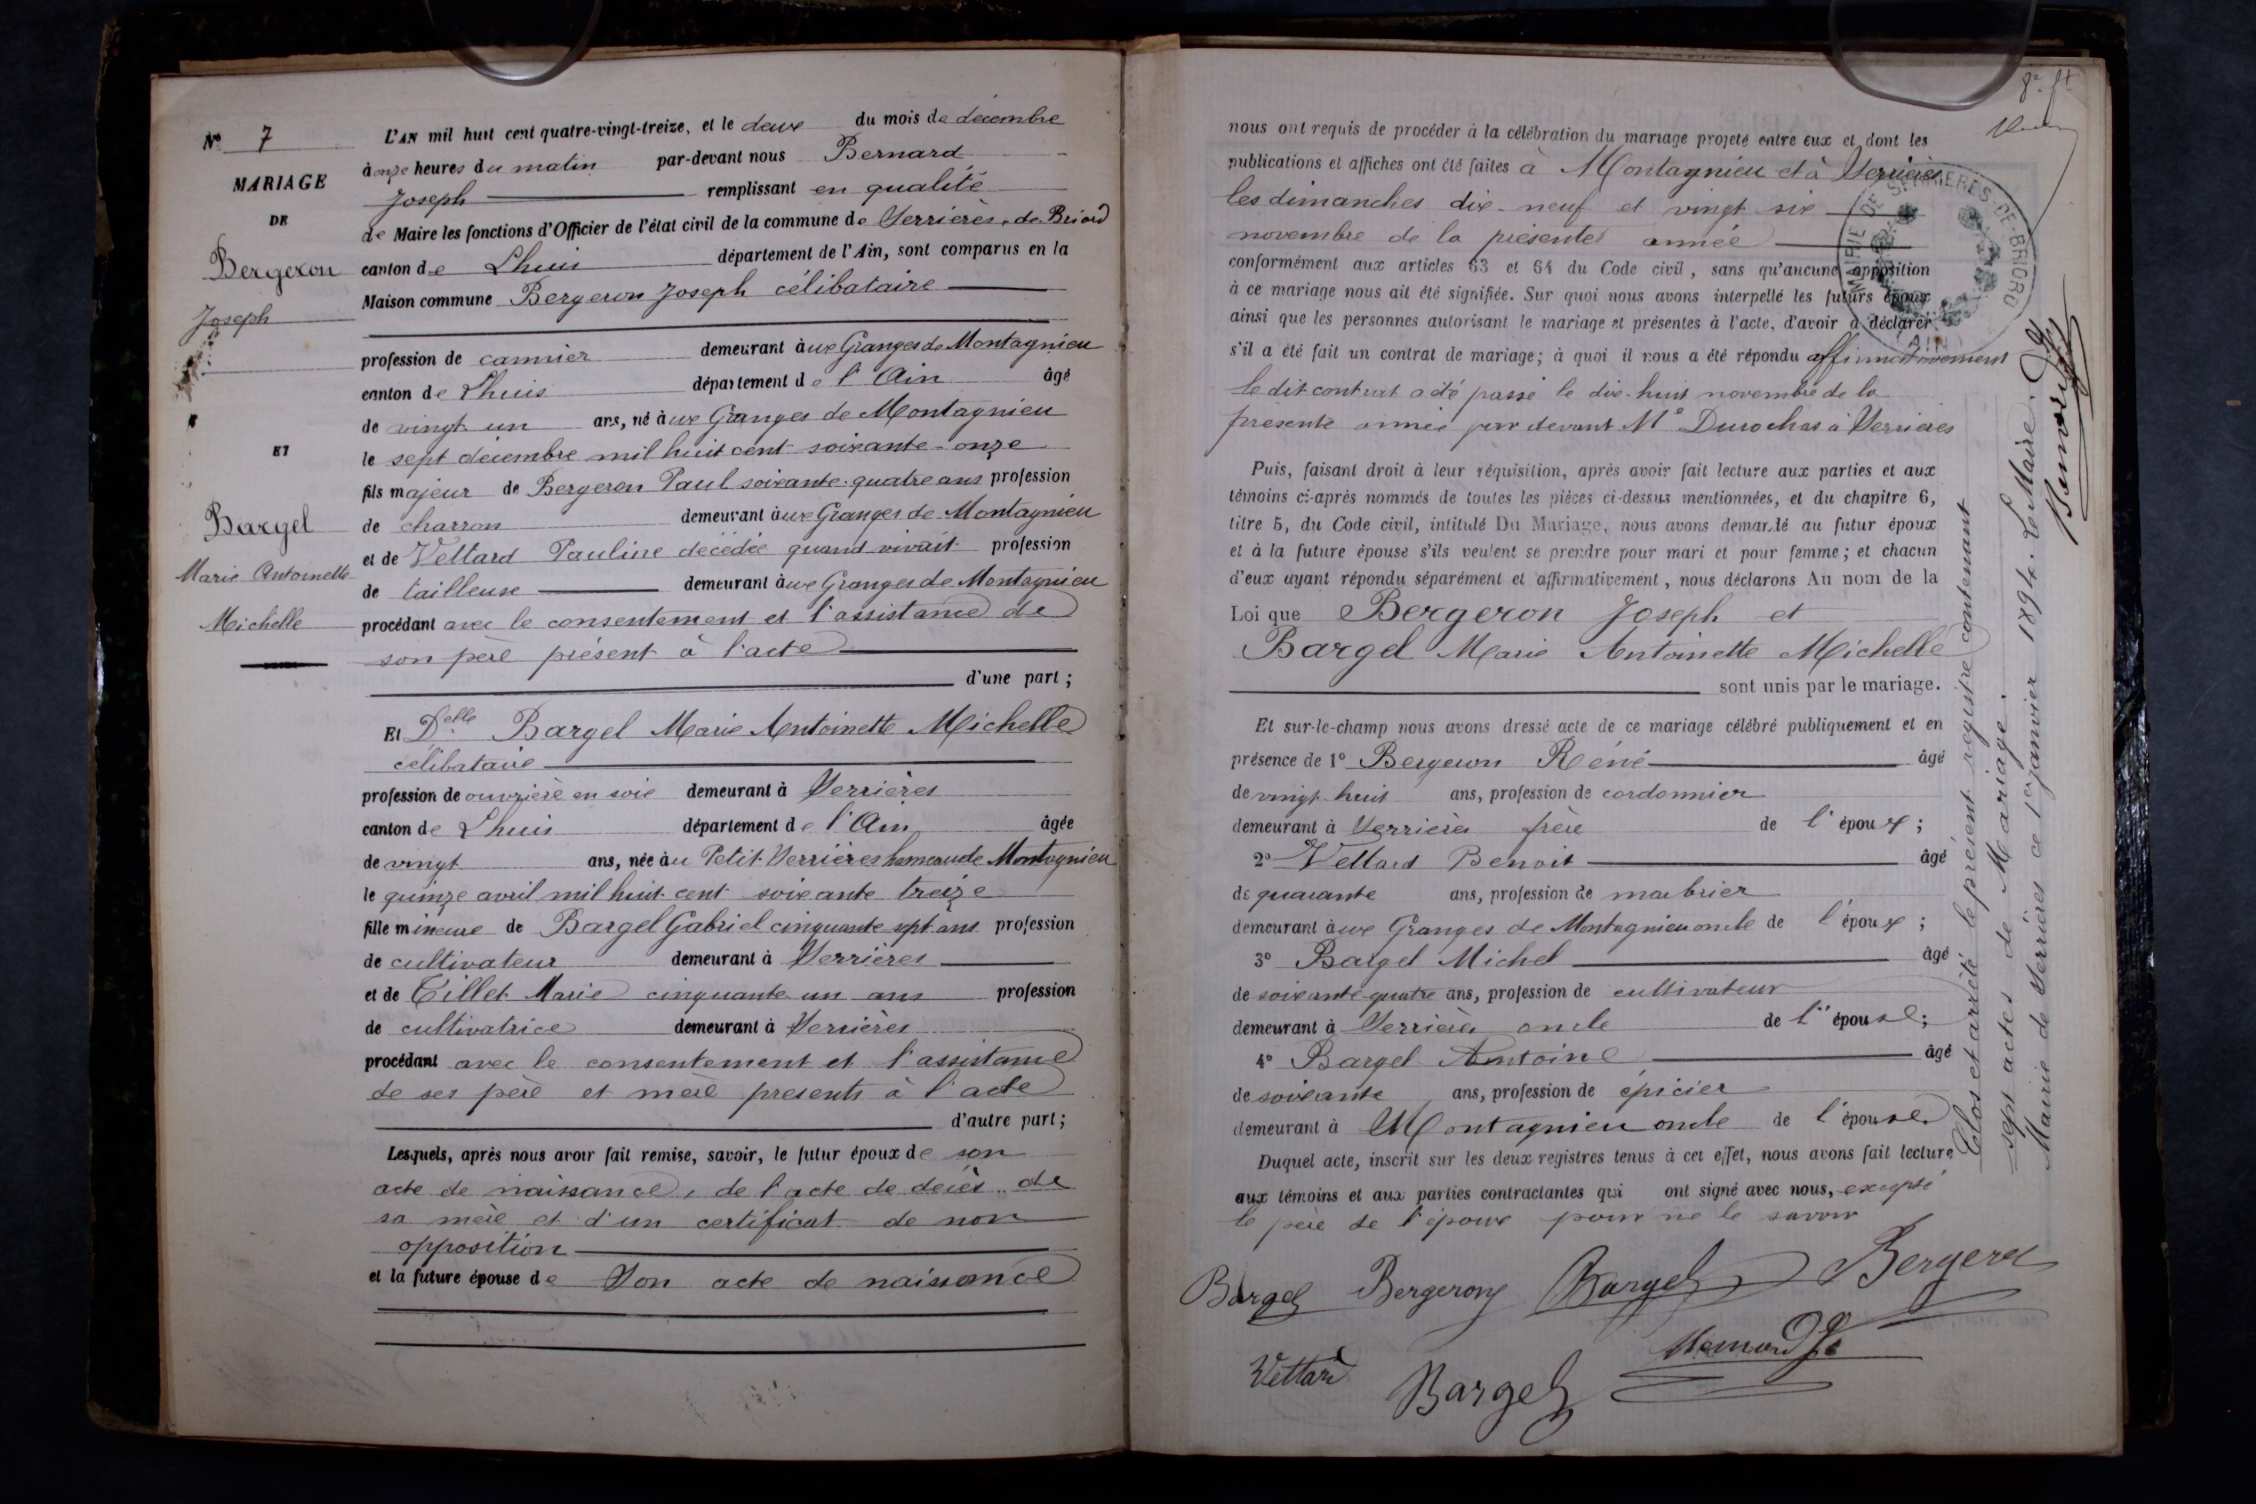 N° 7
MARIAGE
DE
Bergeron
Joseph
ET
Bargel
Marie Antoinette
Michelle
L'AN mil huit cent quatre-vingt-treize, et le deux du mois de décembre
à onze heures du matin par-devant nous Bernard
Joseph remplissant en qualité
de Maire les fonctions d'Officier de l'état civil de la commune de Serrières de Briord
canton de Lhuis département de l'Ain, sont comparus en la
Maison commune Bergeron Joseph célibataire
profession de cannier demeurant à ux Granges de Montagnieu
canton de Lhuis département de l'Ain âgé
de vingt un ans, né à ux Granges de Montagnieu
le sept décembre mil huit cent soixante-onze
fils majeur de Bergeron Paul soixante-quatre ans profession
de charron demeurant à ux Granges de Montagnieu
et de Vettard Pauline décédée quand vivait profession
de tailleuse demeurant à ux Granges de Montagnieu
procédant avec le consentement et l'assistance de
son père présent à l'acte
d'une part ;
Et Delle Bargel Marie Antoinette Michelle
célibataire
profession de ouvrière en soie demeurant à Serrières
canton de Lhuis département de l'Ain âgée
de vingt ans, née à u Petit Serrières hameau de Montagnieu
le quinze avril mil huit cent soixante treize
fille mineure de Bargel Gabriel cinquante sept ans profession
de cultivateur demeurant à Serrières
et de Tillet Marie cinquante un ans profession
de cultivatrice demeurant à Serrières
procédant avec le consentement et l'assistance
de ses père et mère présents à l'acte
d'autre part ;
Lesquels, après nous avoir fait remise, savoir, le futur époux de son
acte de naissance, de l'acte de décès de
sa mère et d'un certificat de non
opposition
et la future épouse de Son acte de naissance
8e ft
nous ont requis de procéder à la célébration du mariage projeté entre eux et dont les
publications et affiches ont été faites à Montagnieu et à Serrières
les dimanches dix-neuf et vingt six
novembre de la présente année
conformément aux articles 63 et 64 du Code civil, sans qu'aucune opposition
à ce mariage nous ait été signifiée. Sur quoi nous avons interpellé les futurs époux
ainsi que les personnes autorisant le mariage et présentes à l'acte, d'avoir à déclarer
s'il a été fait un contrat de mariage ; à quoi il nous a été répondu affirmativement
le dit contrat a été passé le dix-huit novembre de la
présente année par devant Me Durochas à Serrières
Puis, faisant droit à leur réquisition, après avoir fait lecture aux parties et aux
témoins ci-après nommés de toutes les pièces ci-dessus mentionnées, et du chapitre 6,
titre 5, du Code civil, intitulé Du Mariage, nous avons demandé au futur époux
et à la future épouse s'ils veulent se prendre pour mari et pour femme ; et chacun
d'eux ayant répondu séparément et affirmativement, nous déclarons Au nom de la
Loi que Bergeron Joseph et
Bargel Marie Antoinette Michelle
sont unis par le mariage.
Et sur-le-champ nous avons dressé acte de ce mariage célébré publiquement et en
présence de 1° Bergeron Réné âgé
de vingt huit ans, profession de cordonnier
demeurant à Serrières frère de l'époux ;
2° Vettard Benoit âgé
de quarante ans, profession de marbrier
demeurant à ux Granges de Montagnieu oncle de l'époux ;
3° Bargel Michel âgé
de soixante-quatre ans, profession de cultivateur
demeurant à Serrières oncle de l'épouse ;
4° Bargel Antoine âgé
de soixante ans, profession de épicier
demeurant à Montagnieu oncle de l'épouse
Duquel acte, inscrit sur les deux registres tenus à cet effet, nous avons fait lecture
aux témoins et aux parties contractantes qui ont signé avec nous, excepté
le père de l'époux pour ne le savoir
Bargel Bergeron Bargel Bergeron
Vettard Bargel Bernard Jh
MAIRIE DE SERRIÈRES-DE-BRIORD
(AIN)
Clos et arrêté le présent registre contenant
sept actes de Mariage.
Mairie de Serrières ce 1er janvier 1894. Le Maire
Bernard Jh